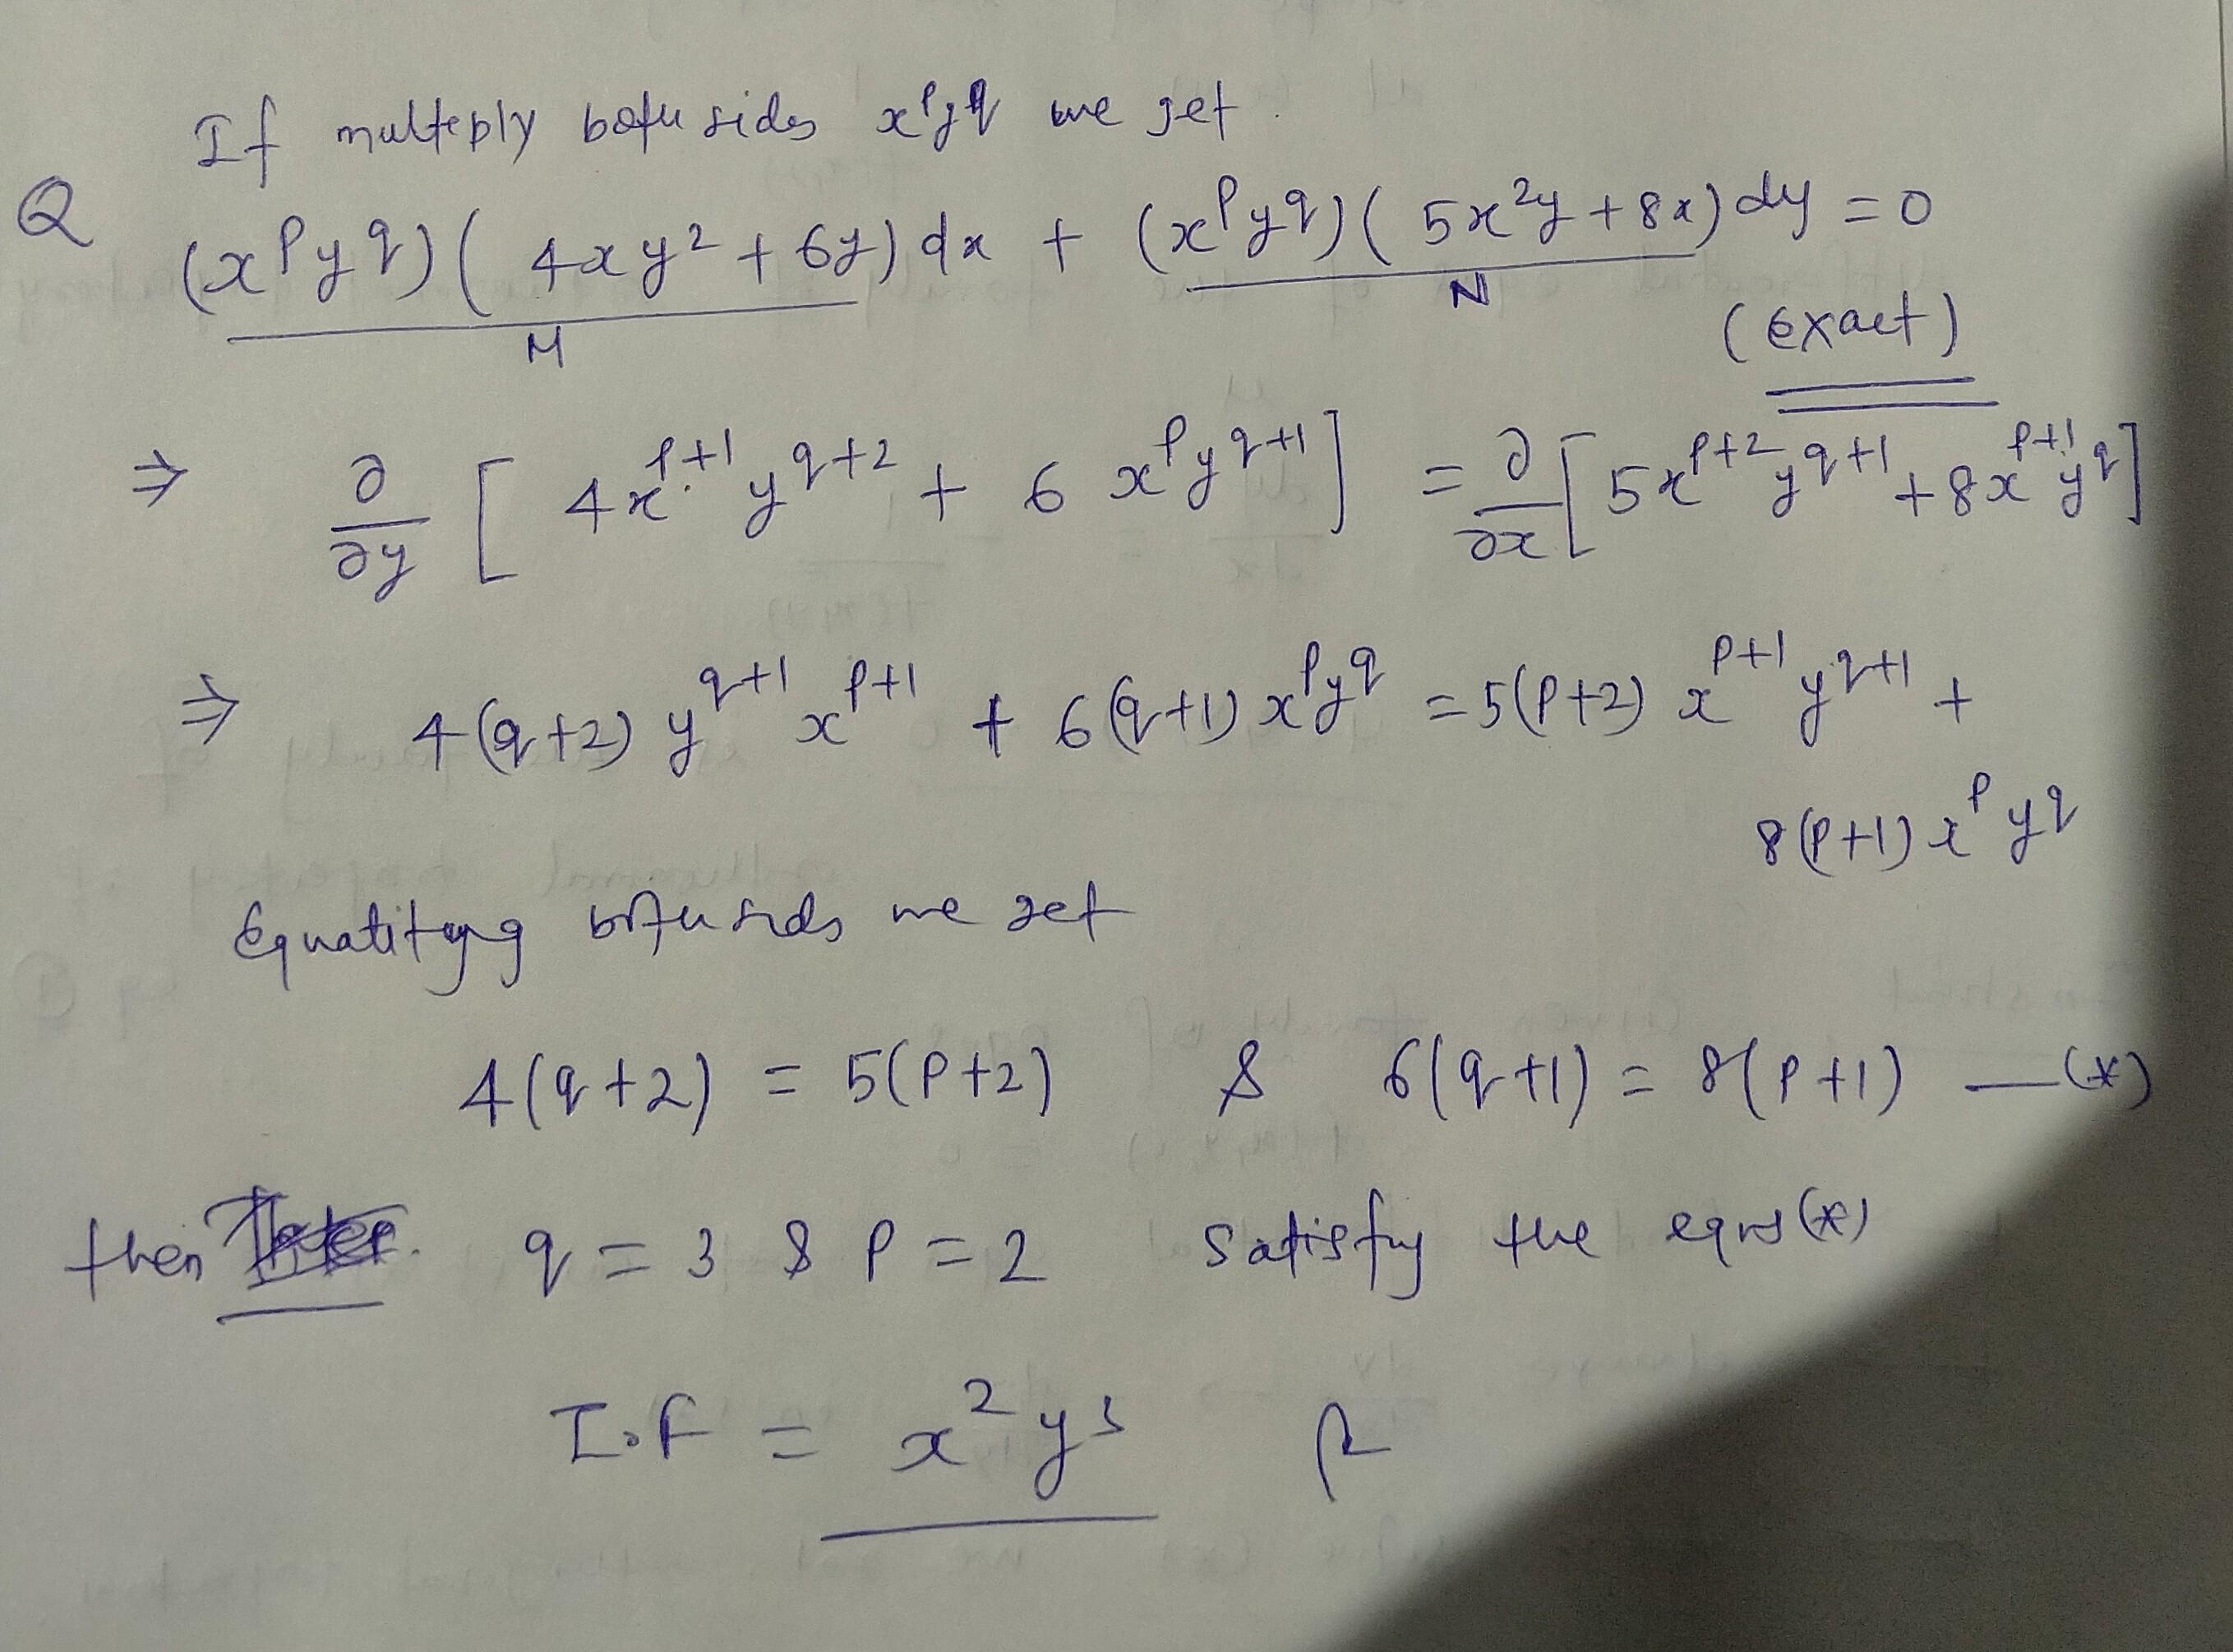 If multeply both sides x^p y^q we get.
Q (x^p y^q)(4xy² + 6y) dx + (x^p y^q)(5x²y + 8x) dy = 0
M N
(exact)
⇒ ∂/∂y [4x^{p+1} y^{q+2} + 6 x^p y^{q+1}] = ∂/∂x [5x^{p+2} y^{q+1} + 8x^{p+1} y^q]
⇒ 4(q+2) y^{q+1} x^{p+1} + 6(q+1) x^p y^q = 5(p+2) x^{p+1} y^{q+1} +
8(p+1) x^p y^q
Equatitying both sides we get
4(q+2) = 5(p+2) & 6(q+1) = 8(p+1) —(*)
then q = 3 & p = 2 satisfy the eqns (*)
I.F = x² y³